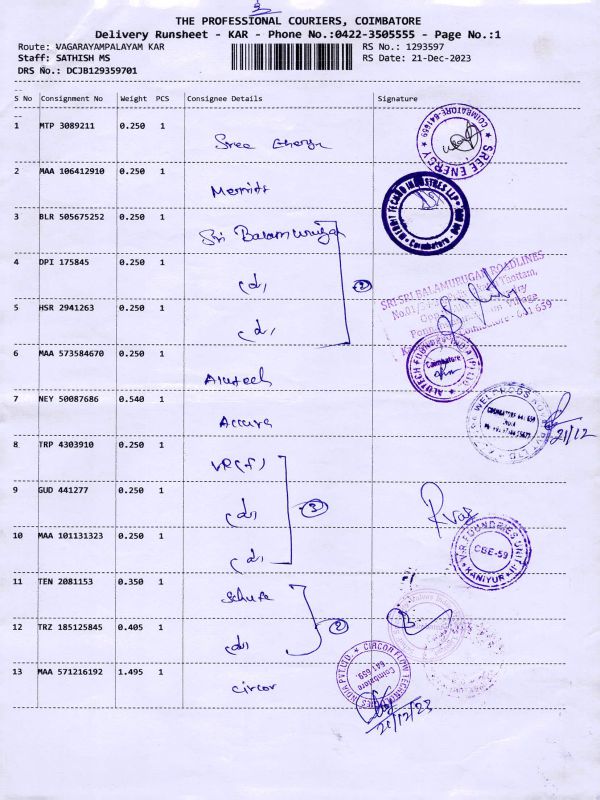 THE PROFESSIONAL COURIERS, COIMBATORE
Delivery Runsheet - KAR - Phone No.:0422-3505555 - Page No.:1
Route: VAGARAYAMPALAYAM KAR RS No.: 1293597
Staff: SATHISH MS RS Date: 21-Dec-2023
DRS No.: DCJB129359701
S No Consignment No Weight PCS Consignee Details Signature
1 MTP 3089211 0.250 1 Sree Energy
COIMBATORE-641659 ★ SREE ENERGY ★
2 MAA 106412910 0.250 1
3 BLR 505675252 0.250 1 Sri Balamurugan
4 DPI 175845 0.250 1 (d)
SRI SRI BALAMURUGAN ROADLINES
5 HSR 2941263 0.250 1 (d)
6 MAA 573584670 0.250 1 Alutech
ALUTECH FOUNDRIES INDIA (P) LTD. Coimbatore
7 NEY 50087686 0.540 1 Accura
21/12
8 TRP 4303910 0.250 1 VR(F)
9 GUD 441277 0.250 1 (d) 3
10 MAA 101131323 0.250 1 (d)
V.R. FOUNDRIES UNIT CBE-59 KANIYUR
11 TEN 2081153 0.350 1
12 TRZ 185125845 0.405 1 (d) 2
13 MAA 571216192 1.495 1 Circor
CIRCOR FLOW TECHNOLOGIES INDIA PVT LTD. Coimbatore 641 659.
21/12/23